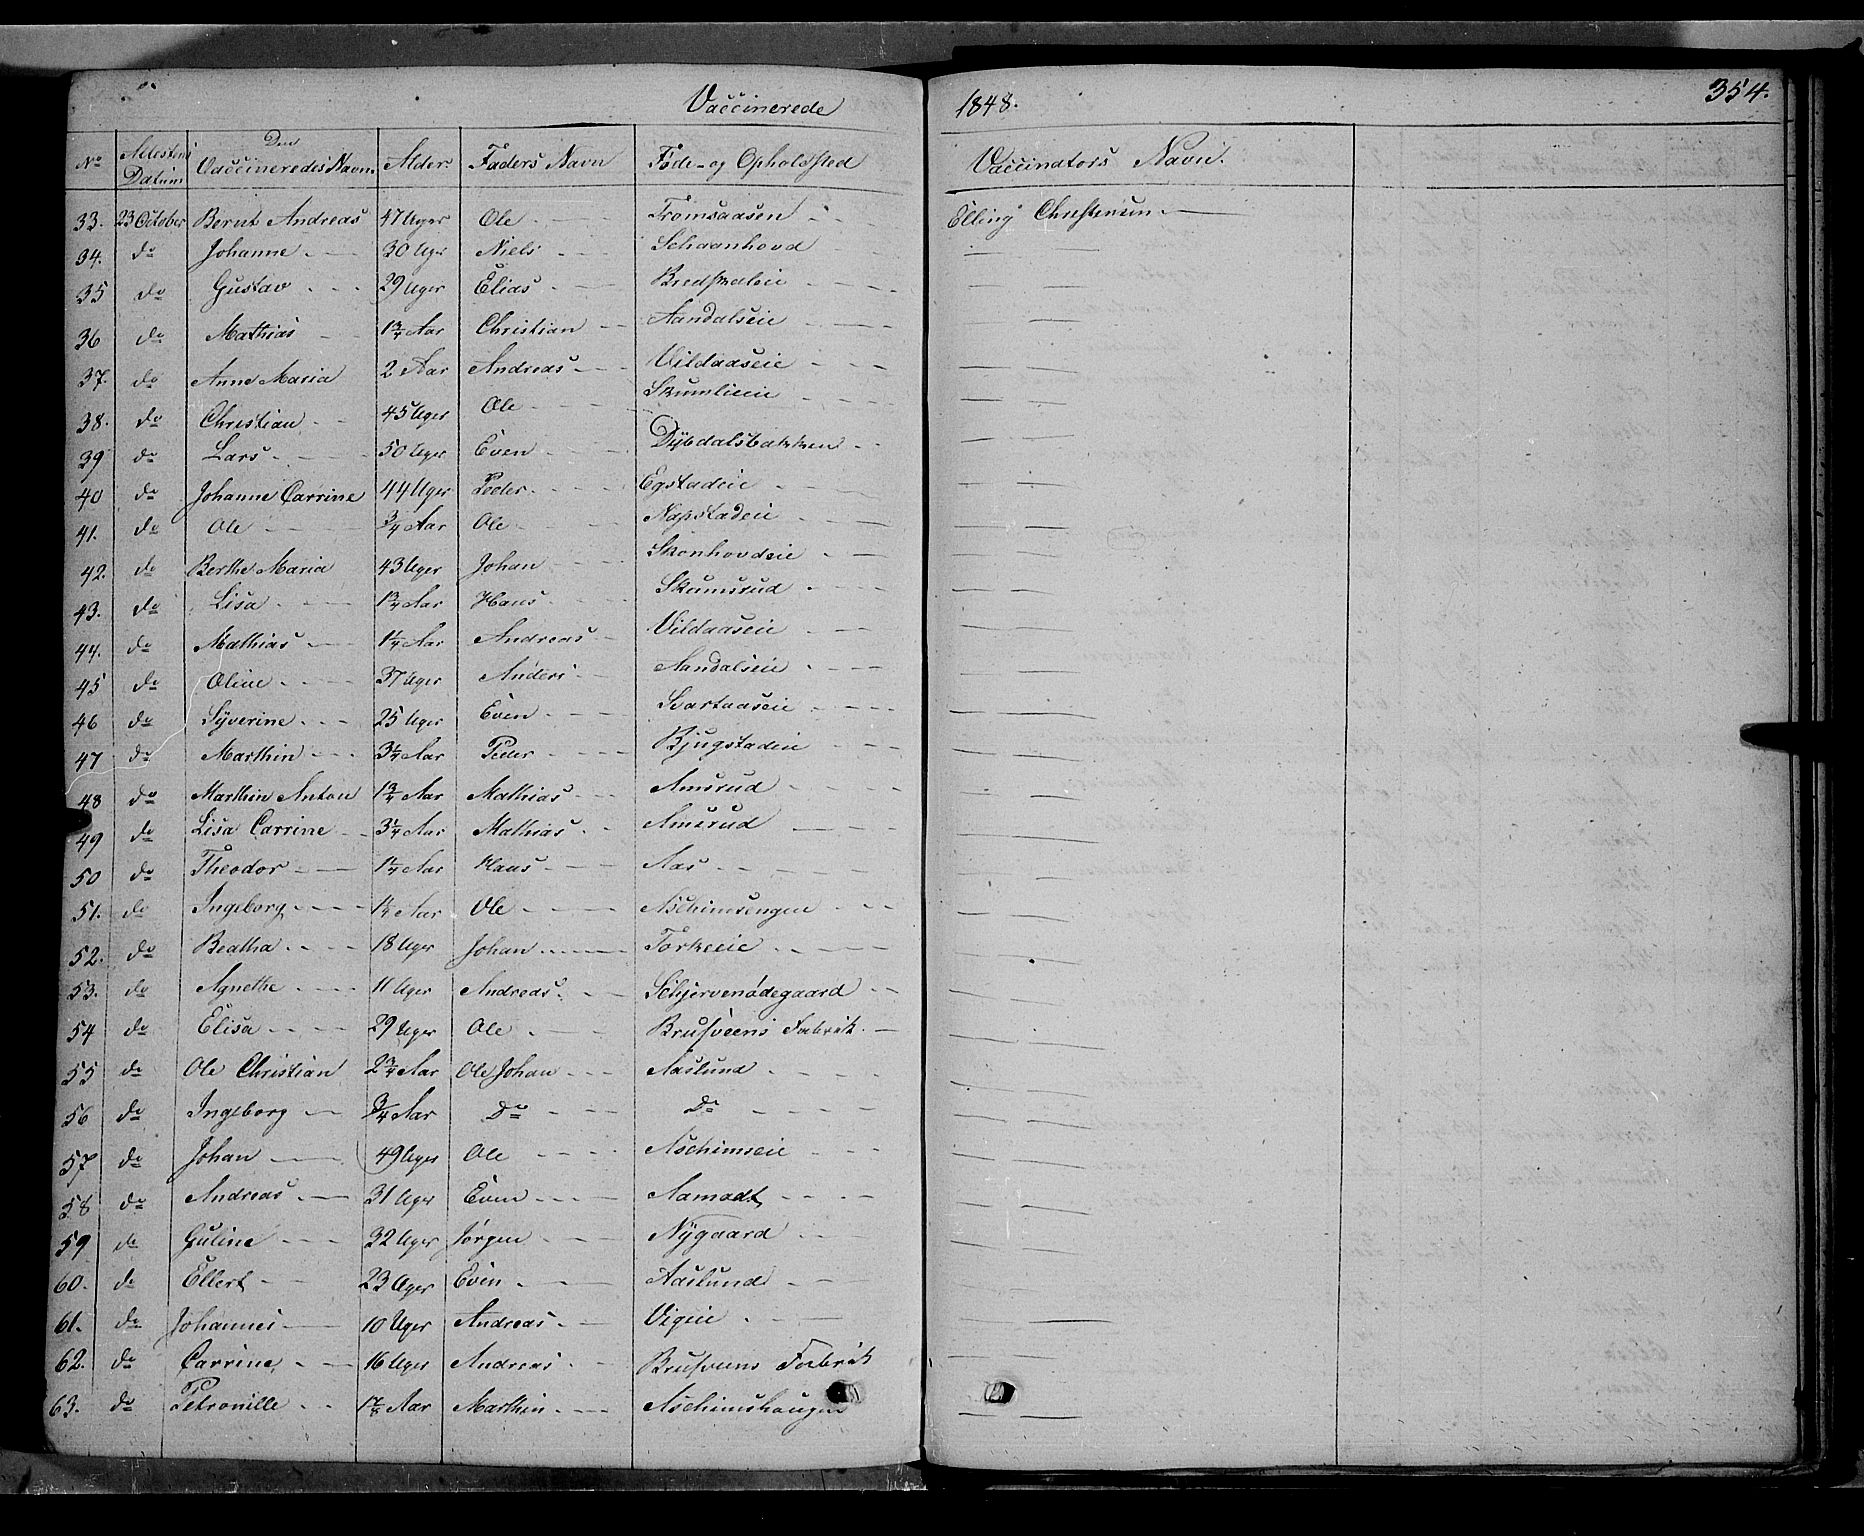 Vaccinerede 1848. 354.
No Attestens Datum Den Vaccineredes Navn Alder Faders Navn Føde- og Opholdsted Vaccinators Navn.
33. 23 October Bernt Andreas 47 Uger Ole Tromsaasen Elling Christensen
34. do Johanne 30 Uger Niels Schaanhovd
35 do Gustav 29 Uger Elias Bredskaleie
36 do Mathias 1 3/4 Aar Christian Aandalseie
37. do Anne Maria 2 Aar Andreas Vildaaseie
38. do Christian 45 Uger Ole Skumlieeie
39 do Lars 50 Uger Even Dybdalsbakken
40 do Johanne Carrine 44 Uger Peder Egstadeie
41. do Ole 3/4 Aar Ole Napstadeie
42. do Berthe Maria 43 Uger Johan Skonhovdeie
43. do Lisa 1 3/4 Aar Hans Skumsrud
44. do Mathias 1 1/4 Aar Andreas Vildaaseie
45 do Oline 37 Uger Anders Aandalseie
46 do Syverine 25 Uger Even Svartaaseie
47 do Marthin 3 1/4 Aar Peder Bjugstadeie
48 do Marthin Anton 1 3/4 Aar Mathias Amsrud
49 do Lisa Carrine 3 1/4 Aar Mathias Amsrud
50 do Theodor 1 1/4 Aar Hans Aas
51. do Ingeborg 1 1/4 Aar Ole Aschimsengen
52. do Beatha 18 Uger Johan Torkeeie
53. do Agnethe 11 Uger Andreas Schjervenødegaard
54 do Elisa 29 Uger Ole Brufveens Fabrik
55 do Ole Christian 2 3/4 Aar Ole Johan Aaslund
56 do Ingeborg 3/4 Aar Do Do
57 do Johan 49 Uger Ole Aschimseie
58 do Andreas 31 Uger Even Aamodt
59 do Guline 32 Uger Jørgen Nygaard
60. do Ellert 23 Uger Even Aaslund
61. do Johannes 10 Uger Andreas Vigeie
62. do Carrine 16 Uger Andreas Brufveens Fabrik
63. do Petronille 1 7/8 Aar Marthin Aschimshaugen